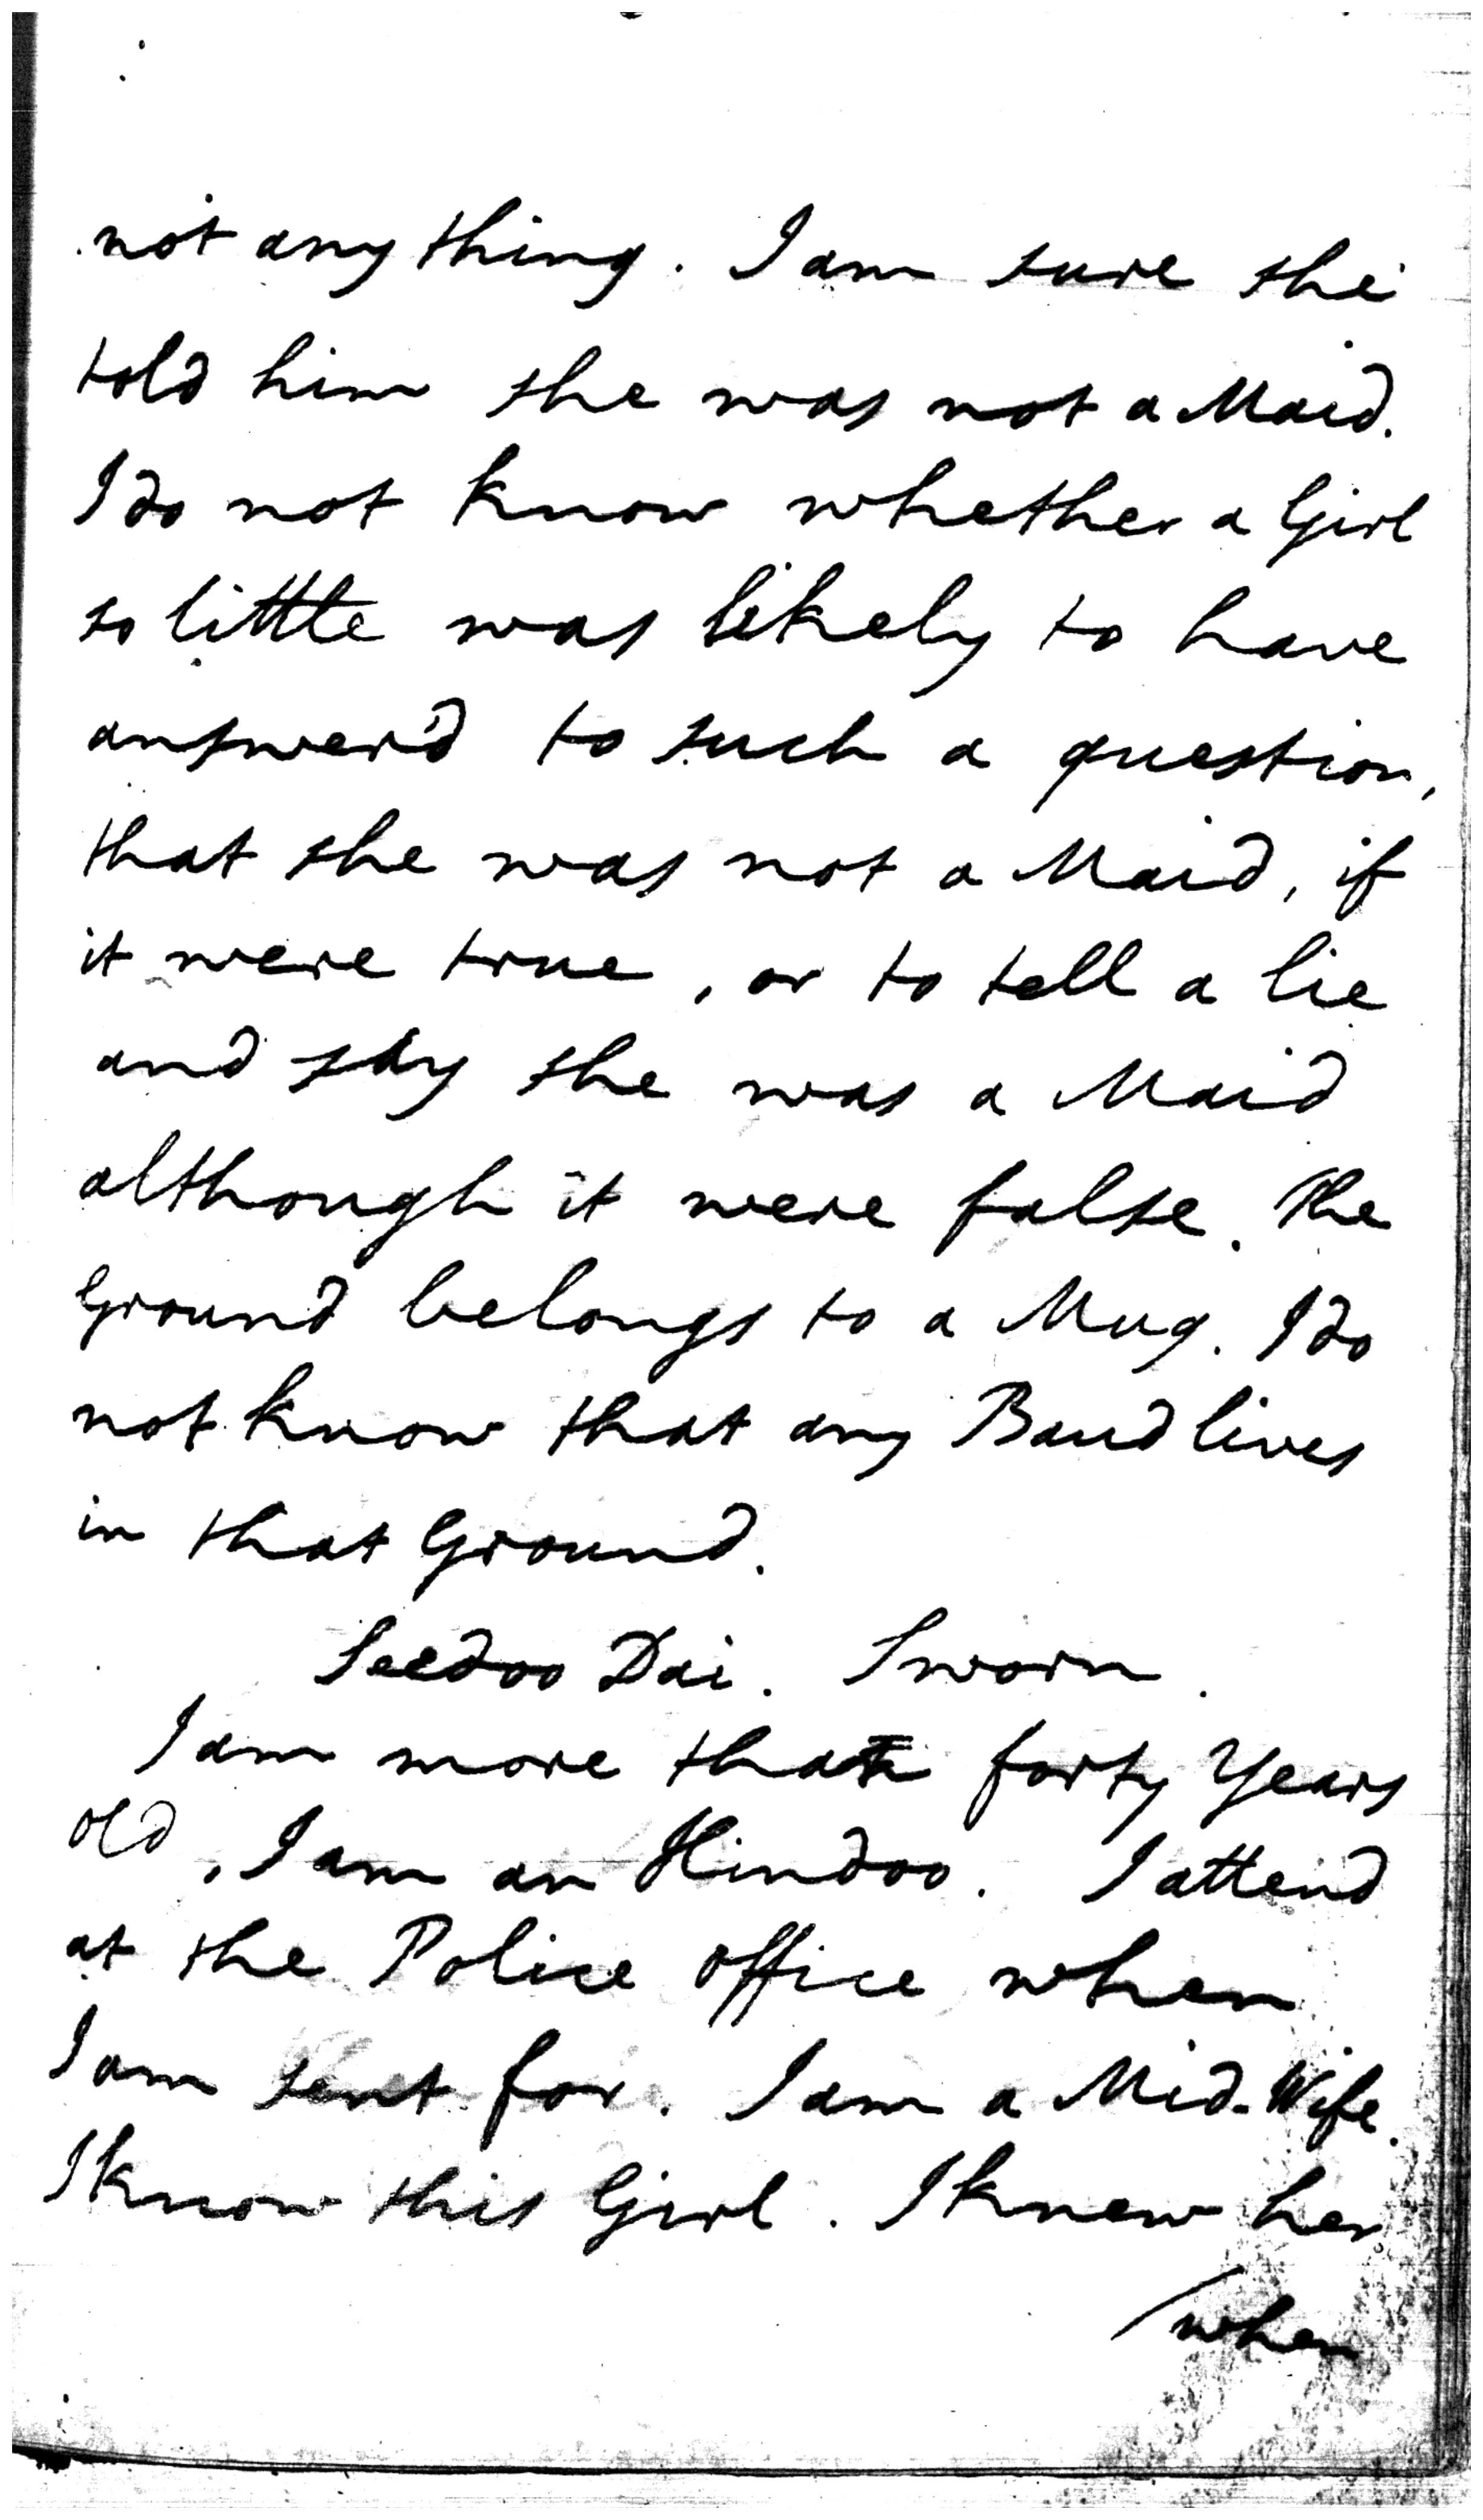 not any thing. I am sure she
told him she was not a Maid.
I do not know whether a Girl
so little was likely to have
answer'd to such a question,
that she was not a Maid, if
it were true, or to tell a lie
and say she was a Maid
although it were false. The
Ground belongs to a Mug. I do
not know that any Baud lives
in that Ground.
Seedoo Dai. Sworn.
I am more than forty Years
old, I am an Hindoo. I attend
at the Police office when
I am sent for. I am a Mid-Wife.
I know this Girl. I knew her
/when